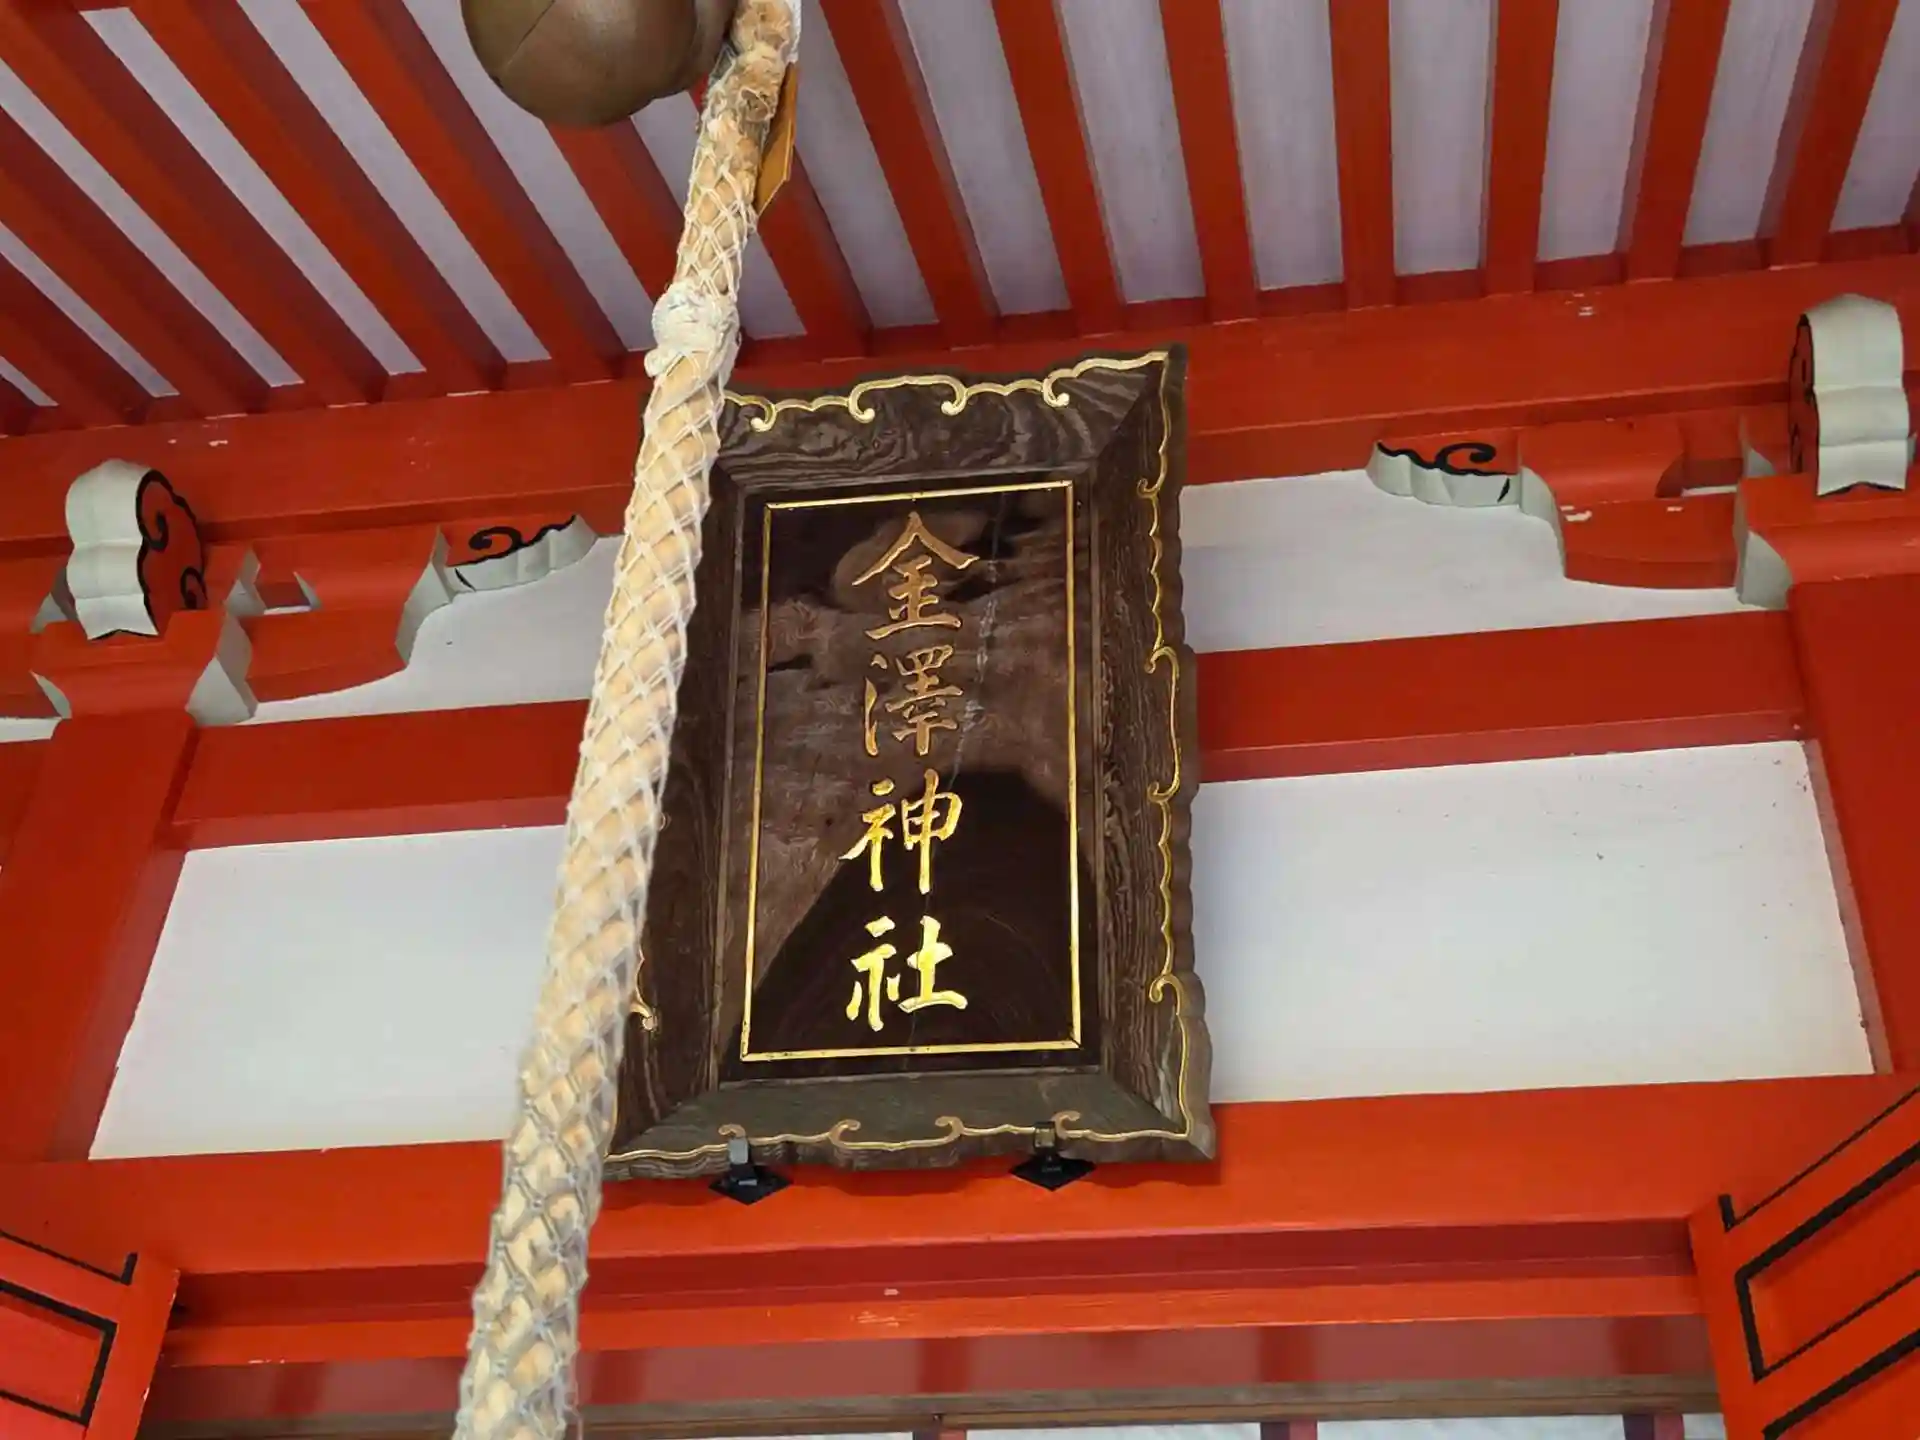 金澤神社